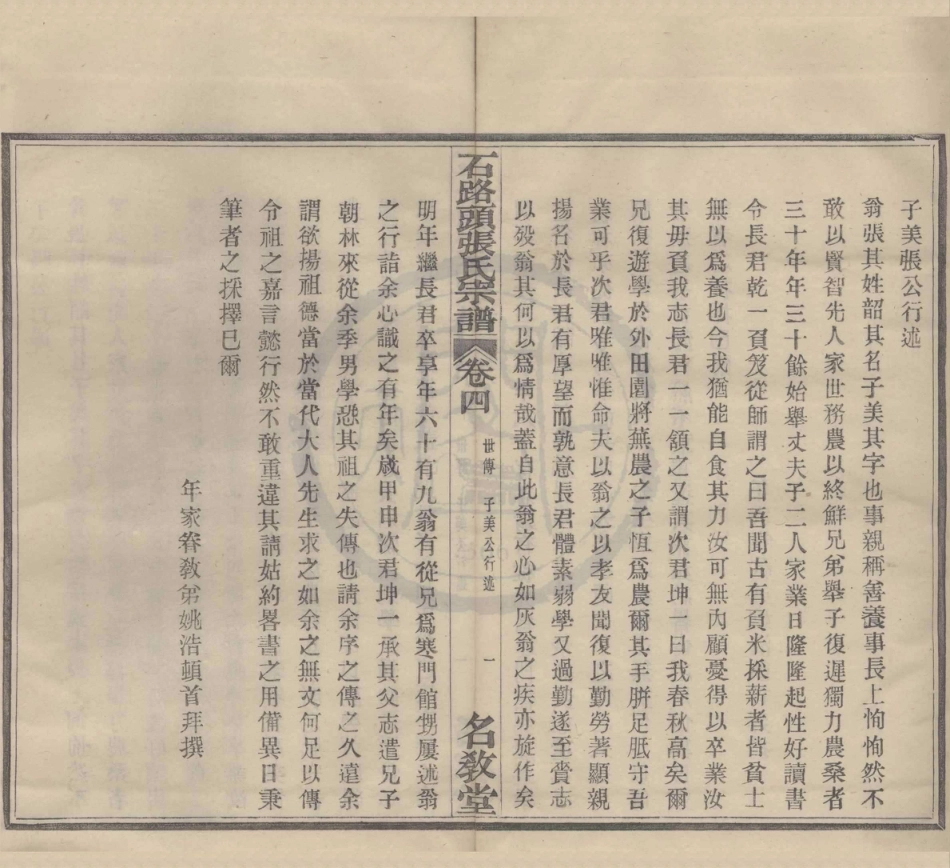 子美張公行述
翁張其姓韶其名子美其字也事親稱善養事長上恂恂然不
敢以賢智先人家世務農以終鮮兄弟舉子復遲獨力農桑者
三十年年三十餘始舉丈夫子二人家業日隆隆起性好讀書
令長君乾一負笈從師謂之曰吾聞古有負米採薪者皆貧士
無以爲養也今我猶能自食其力汝可無內顧憂得以卒業汝
其毋負我志長君一一頷之又謂次君坤一曰我春秋高矣爾
兄復遊學於外田園將蕪農之子恆爲農爾其手胼足胝守吾
業可乎次君雅雅惟命夫以翁之以孝友聞復以勤勞著顯親
揚名於長君有厚望而孰意長君體素弱學又過勤遂至賫志
以殁翁其何以爲情哉蓋自此翁之心如灰翁之疾亦旋作矣
石路頭張氏宗譜
卷四
世傳 子美公行述
一
名教堂
明年繼長君卒享年六十有九翁有從兄爲寒門館甥屢述翁
之行詣余心識之有年矣歲甲申次君坤一承其父志遣兄子
朝林來從余季男學恐其祖之失傳也請余序之傳之久遠余
謂欲揚祖德當於當代大人先生求之如余之無文何足以傳
令祖之嘉言懿行然不敢重違其請姑約畧書之用備異日秉
筆者之採擇已爾
年家眷教弟姚浩頓首拜撰